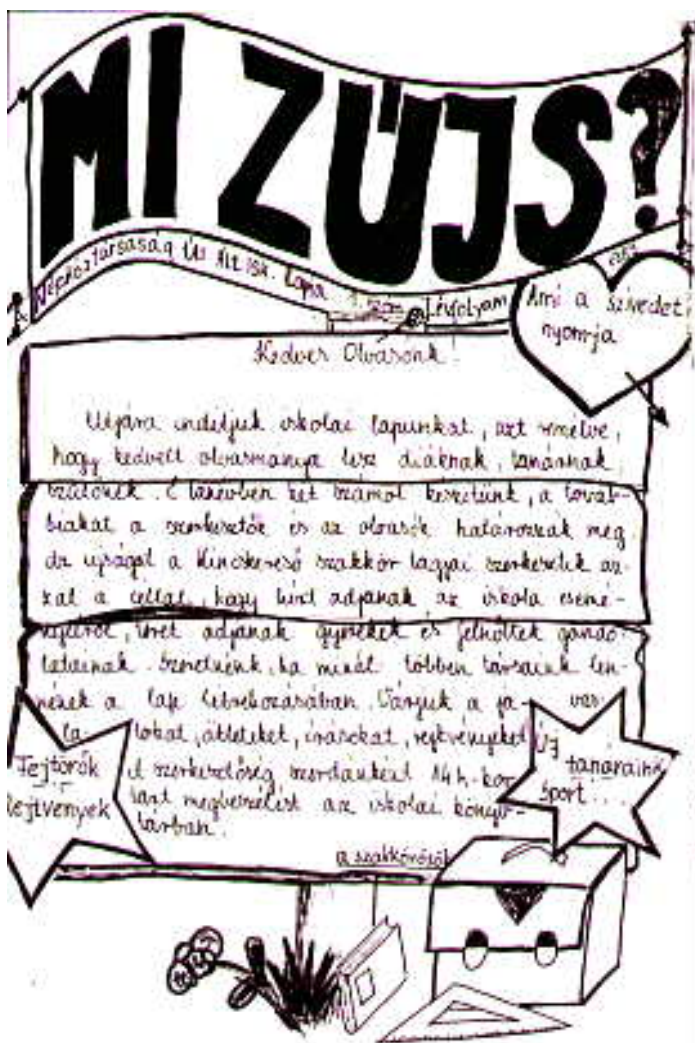 MI ZÚJS?
Népköztársaság Úti Ált. Isk. Lapja 1. szám I. évfolyam
Ami a szívedet
nyomja
Kedves Olvasónk!
Útjára indítjuk iskolai lapunkat, azt remélve,
hogy kedvelt olvasmánya lesz diáknak, tanárnak,
szülőnek. E tanévben két számot készítünk, a továb-
biakat a szerkesztők és az olvasók határozzák meg.
Az újságot a Kincskereső szakkör tagjai szerkesztik az-
zal a céllal, hogy hírt adjanak az iskola esemé-
nyeiről, teret adjanak gyerekek és felnőttek gondo-
latainak. Szeretnénk, ha minél többen társaink len-
nének a lap létrehozásában. Várjuk a ja- vas-
la tokat, ötleteket, írásokat, rejtvényeket
A szerkesztőség szerdánként 14 h-kor
tart megbeszélést az iskolai könyv-
tárban.
a szakkörösök
Fejtörők
Rejtvények
Új tanáraink
Sport...